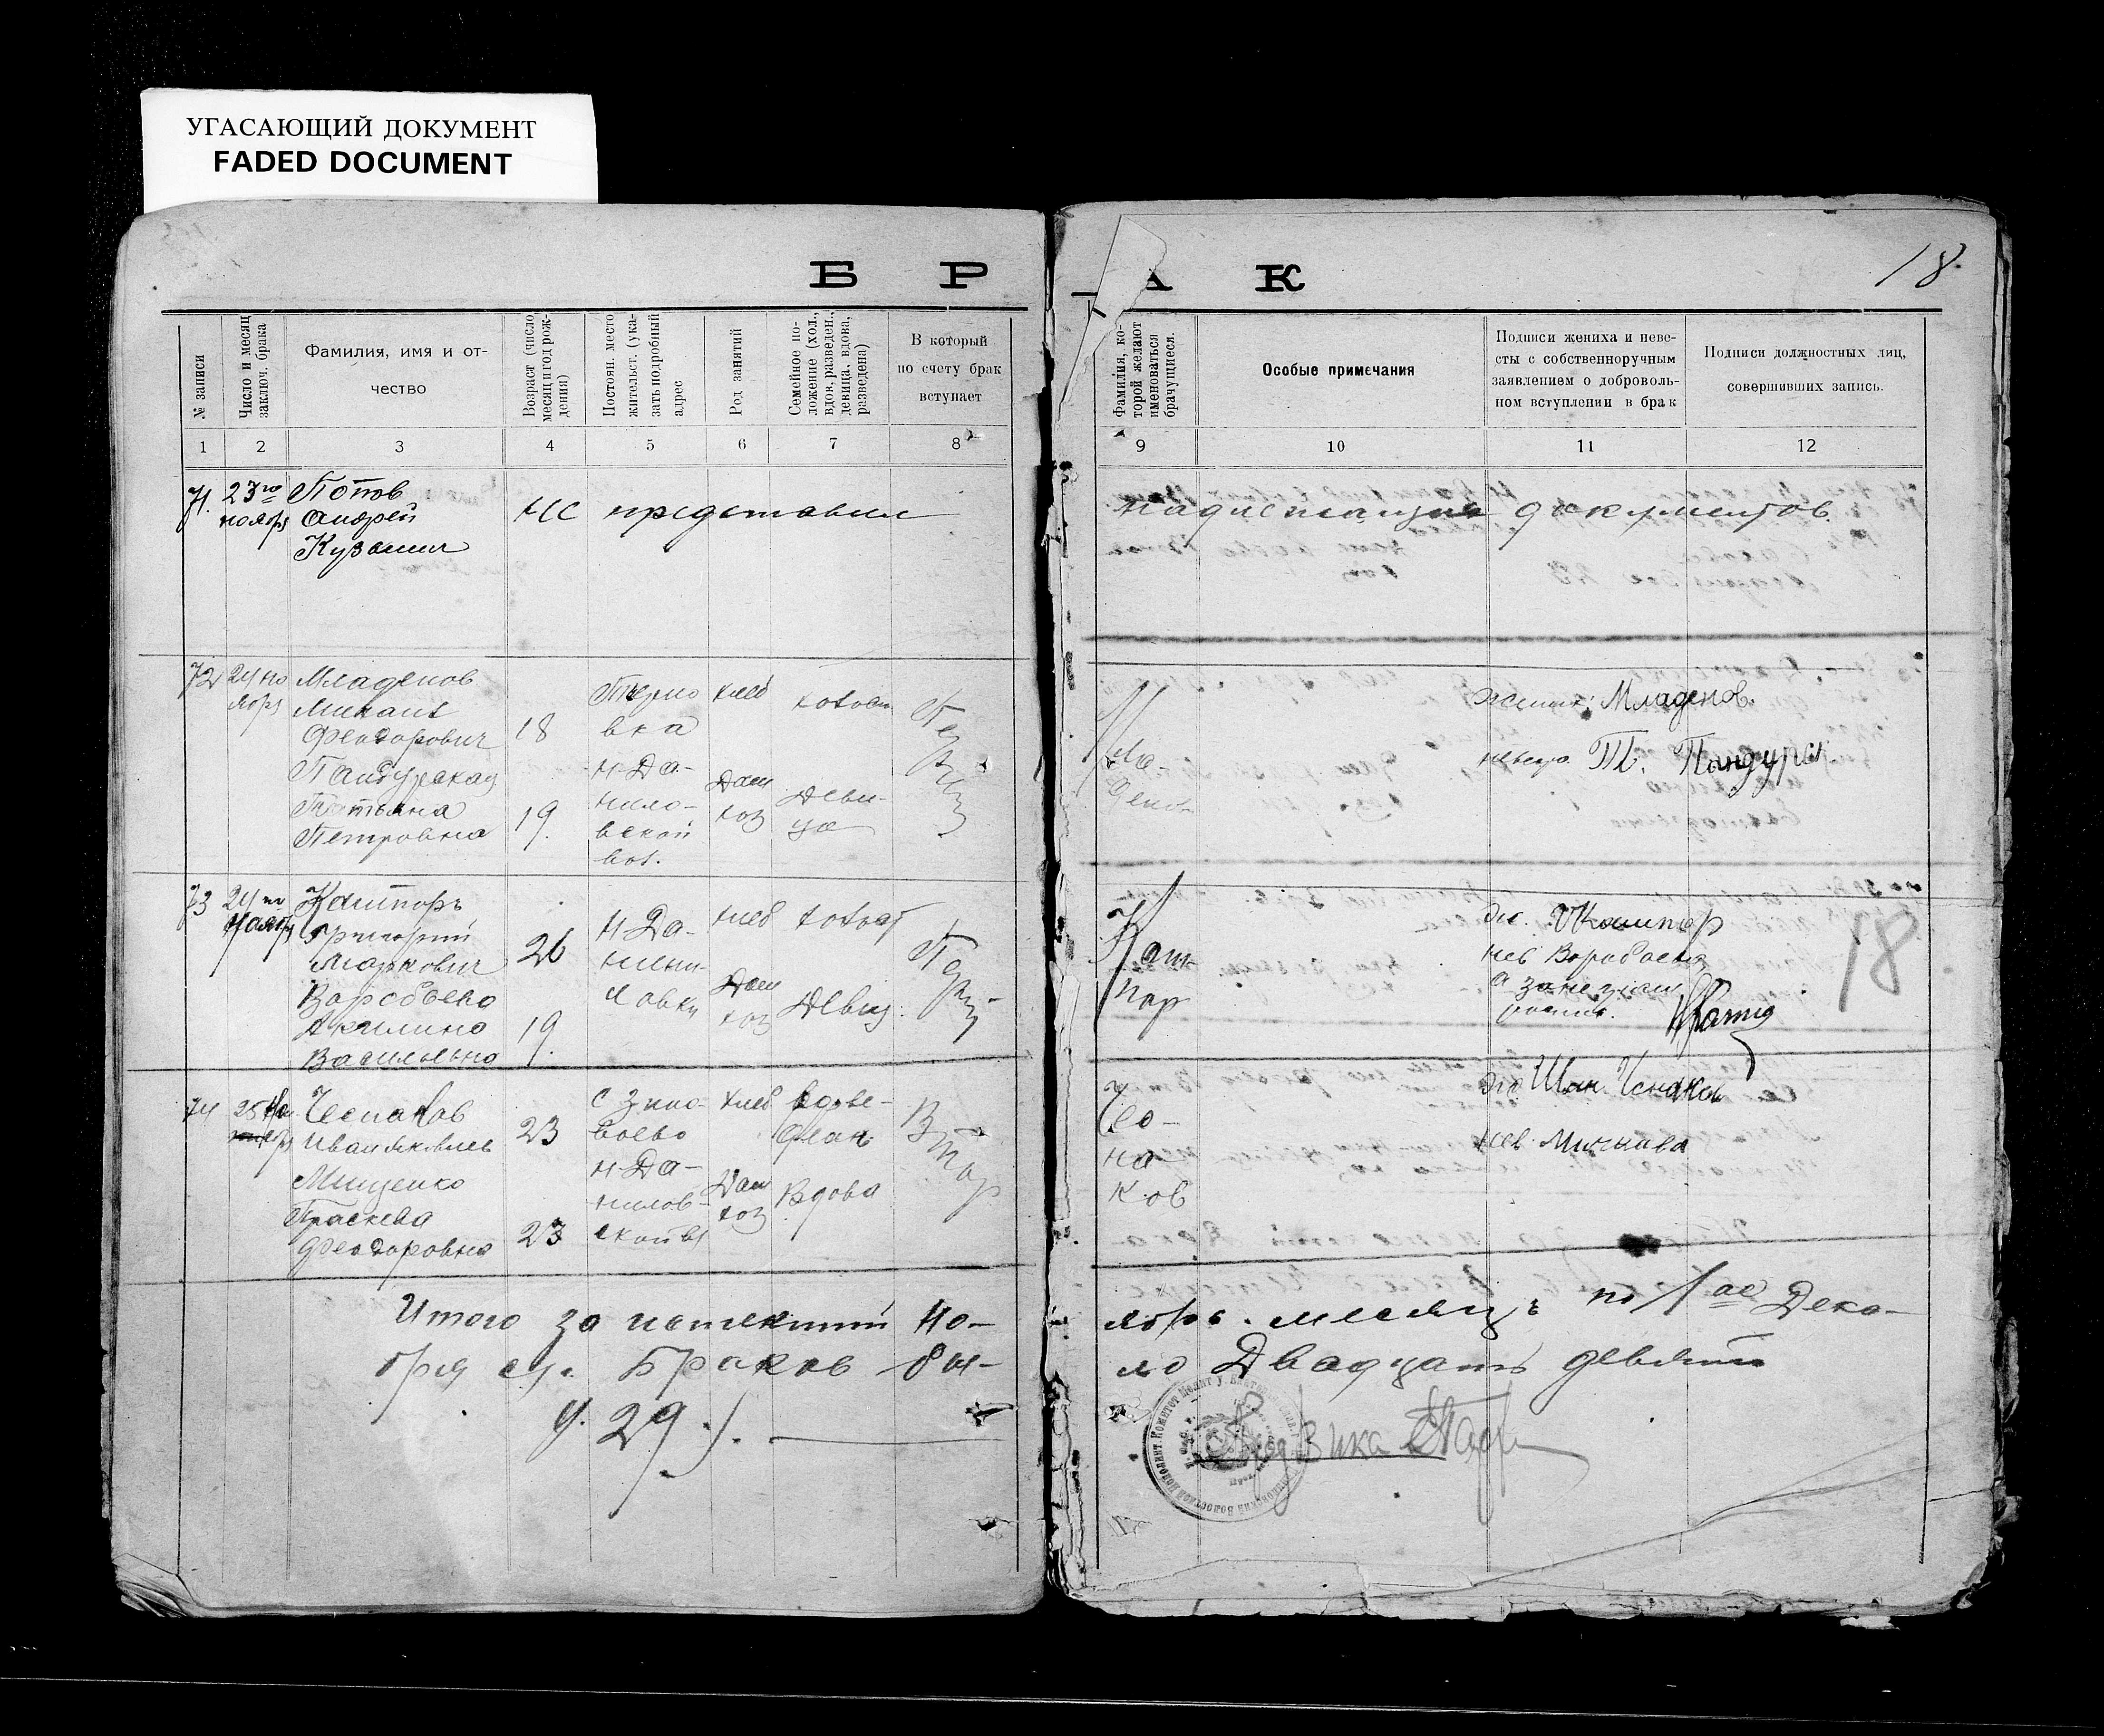 УГАСАЮЩИЙ ДОКУМЕНТ
FADED DOCUMENT
Б Р А К
18.
№ записи
Число и месяц
заключ. брака
Фамилия, имя и от-
чество
Возраст (число
месяц и год рож-
дения)
Постоян. место
жительст. (ука-
зать подробный
адрес
Род занятий
Семейное по-
ложение (хол.,
вдов, разведен.,
девица, вдова,
разведена)
В который
по счету брак
вступает
Фамилия, ко-
торой желают
именоваться
брачущиеся.
Особые примечания
Подписи жениха и неве-
сты с собственноручным
заявлением о доброволь-
ном вступлении в брак
Подписи должностных лиц,
совершивших запись.
1 2 3 4 5 6 7 8 9 10 11 12
71. 23го
ноябр
Попов
Андрей
Кузьмич
не представил надлежащия документов.
72 24 но
ябр
Младенов
Михаил
Феодорович
18
вка
хлеб
холост
Пандурская
Татьяна
Петровна
19.
Н-Да-
нило-
вской
вол.
Дом
хоз
Деви-
ца
Мла-
дено-
жених: Младенов.
невеста Т. Пандурск.
73 24 но
Ноябр
Каштор
Григорий
Маркович
26
Н-Да-
нили-
ловки
хлеб
холост
Воробьева
Акилина
Васильевна
19.
Дом
хоз
Девиц.
Первый
Каш-
тор
жс. Каштор
нев Воробьева
18
74 25 Но-
ябр
Чеснаков
Иван Яковлев
23
хлеб
вдове-
Мищенко
Праскева
Феодоровна
23
Н-Да-
нилов-
ской вл
Дом
хоз
Вдова
Втор
Чес-
на-
ков
Чеснаков
нев.
Итого за истекший но-
ябрь месяцъ по 1ое Дека-
бря сл. Браков бы-
ло Двадцать девять
/. 29 ./.